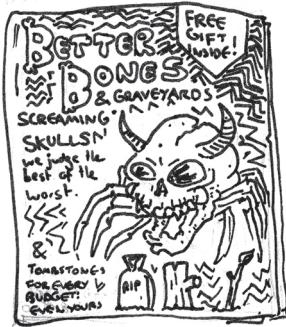 FREE
GIFT
INSIDE!
BETTER
BONES
& GRAVEYARDS
SCREAMING
SKULLS N'
we judge the
best of the
worst.
&
TOMBSTONES
FOR EVERY
BUDGET:
EVEN YOURS
RIP